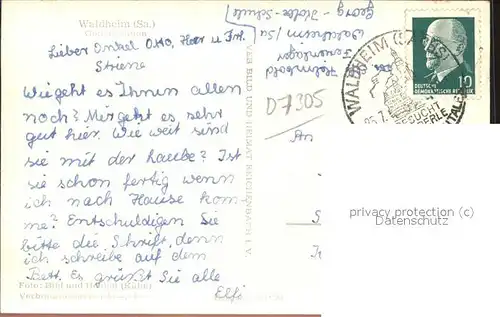 Waldheim (Sa.)
Lieber Onkel Otto, Herr u. Frl.
Striene
Wie geht es Ihnen allen
noch? Mir geht es sehr
gut hier. Wie weit sind
sie mit der Laube? Ist
sie schon fertig wenn
ich nach Hause kom-
me? Entschuldigen Sie
bitte die Schrift, denn
ich schreibe auf dem
Bett. Es grüßt Sie alle
Elfi
Foto: Bild und Heimat (Kuhn)
VEB BILD UND HEIMAT REICHENBACH I. V.
Waldheim / Sa
Georg - Schule
D7305
An
WALDHEIM (SACHS)
BESUCHT
PERLE
TALES
10
DEUTSCHE
DEMOKRATISCHE REPUBLIK
privacy protection (c)